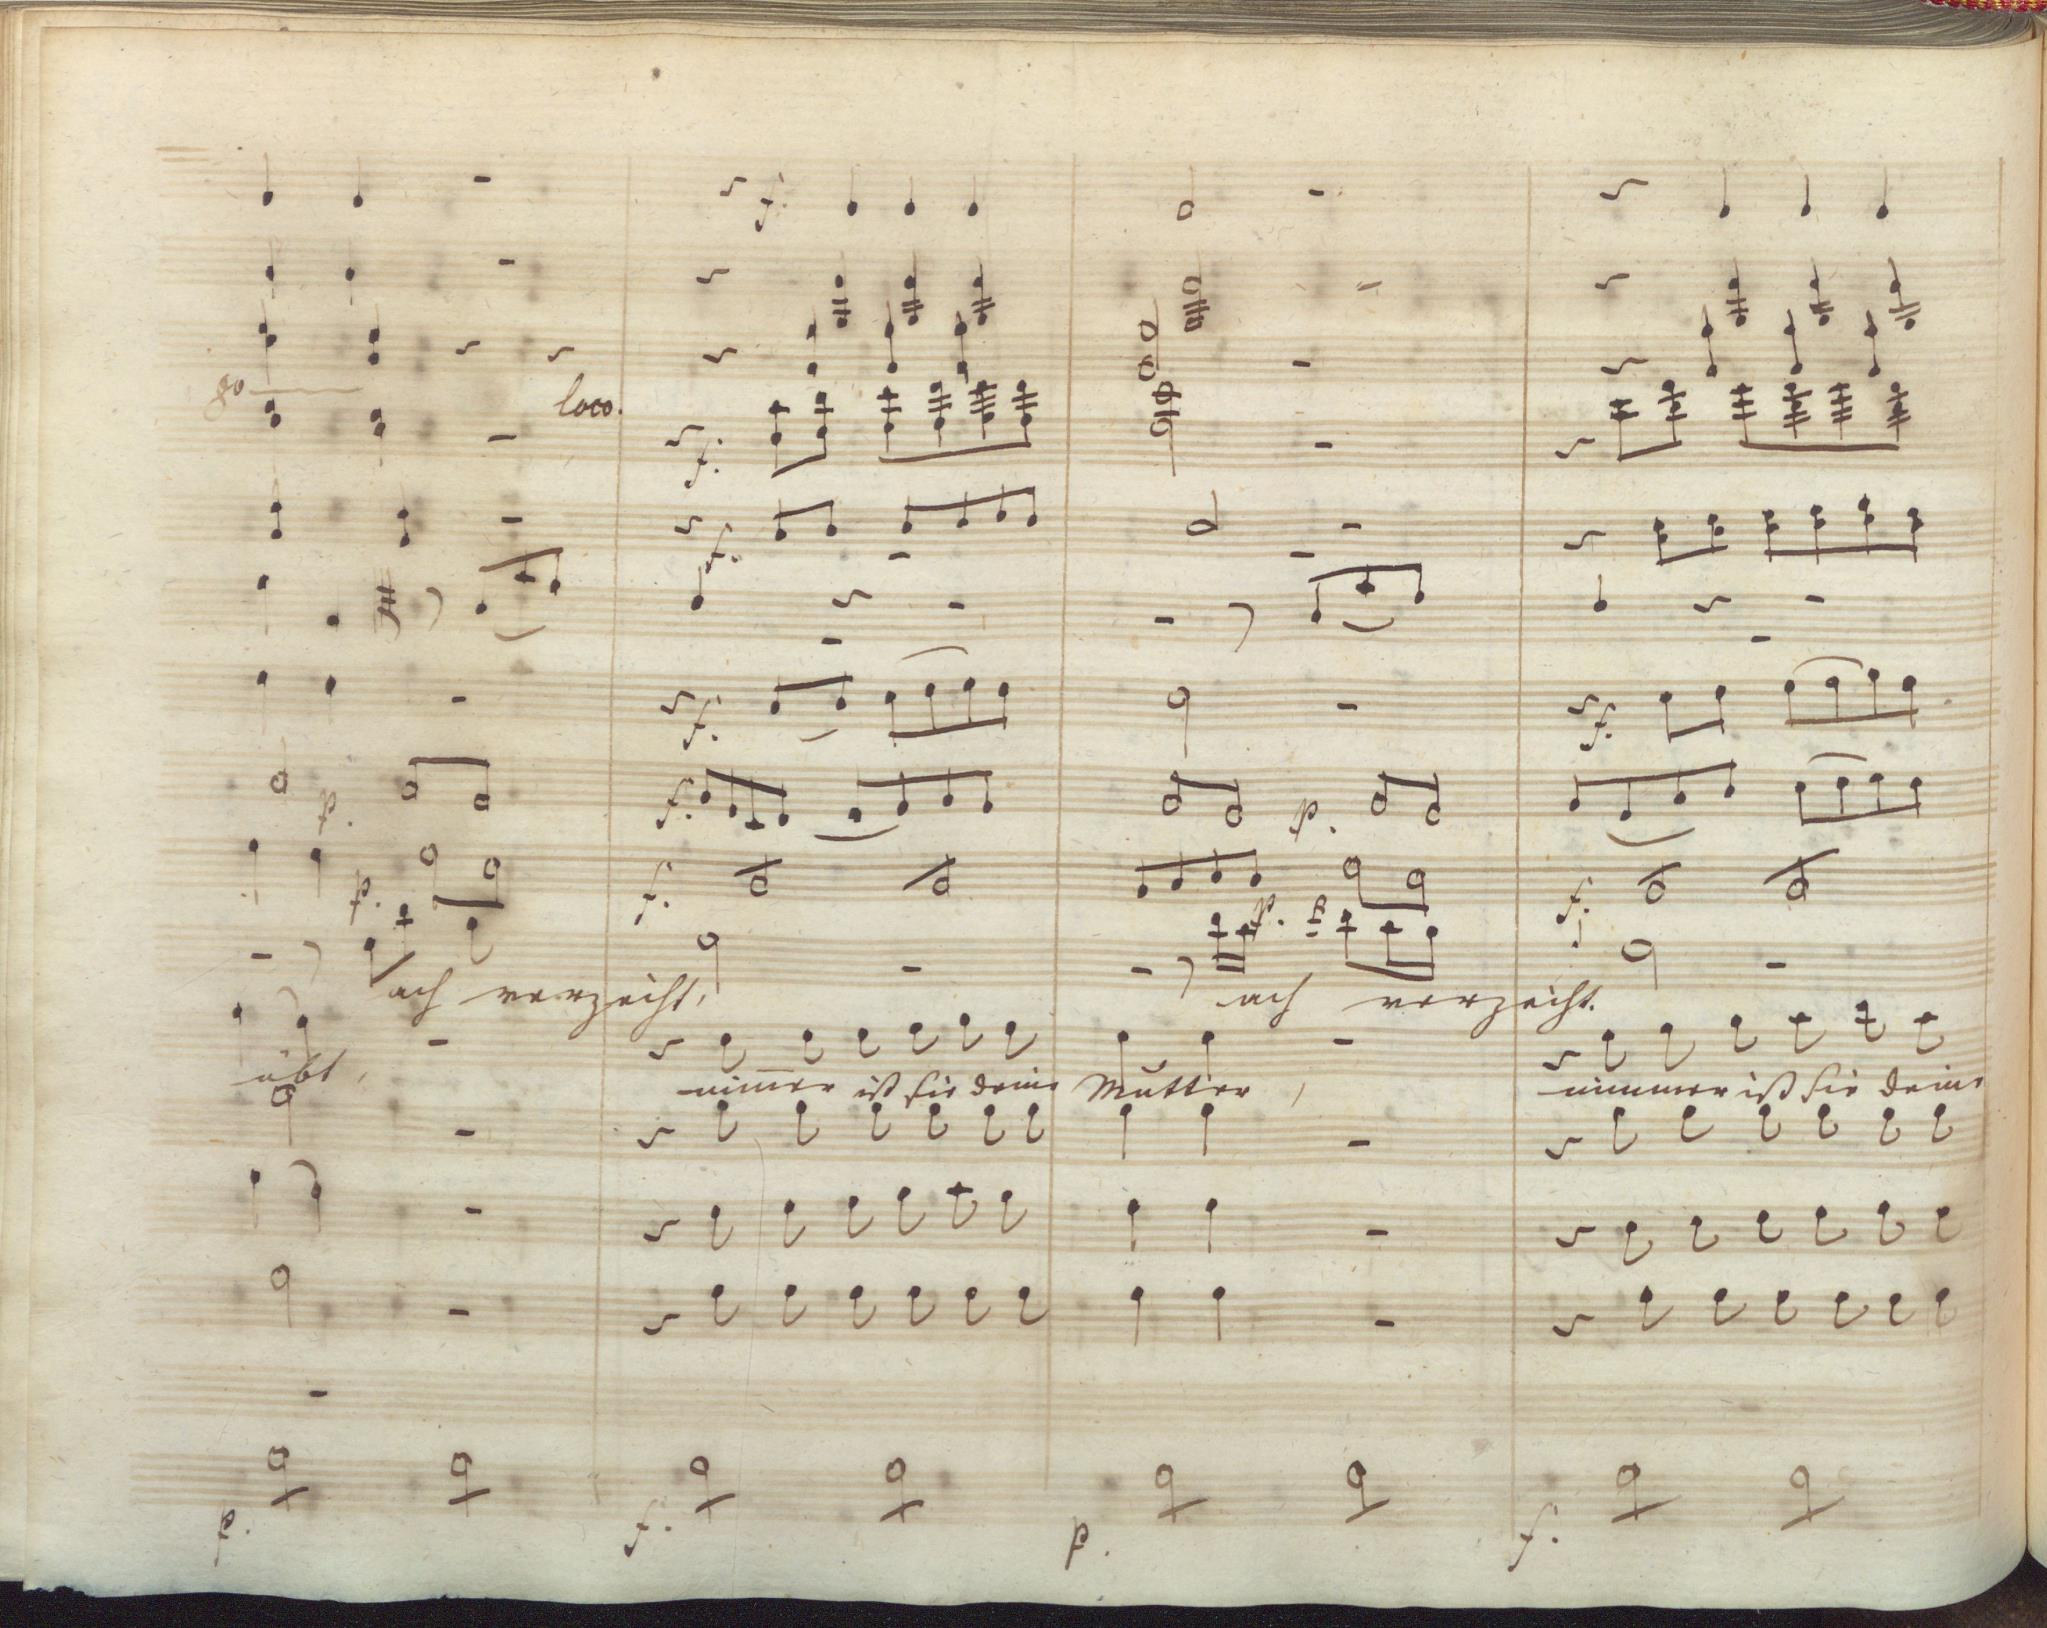 8o
loco.
f.
f.
f.
f.
p.
f.
p.
f.
p.
f.
p.
f.
ach verzeiht,
ach verzeiht.
übt,
nimmer ist sie deine Mutter,
nimmer ist sie deine
p.
f.
p.
f.